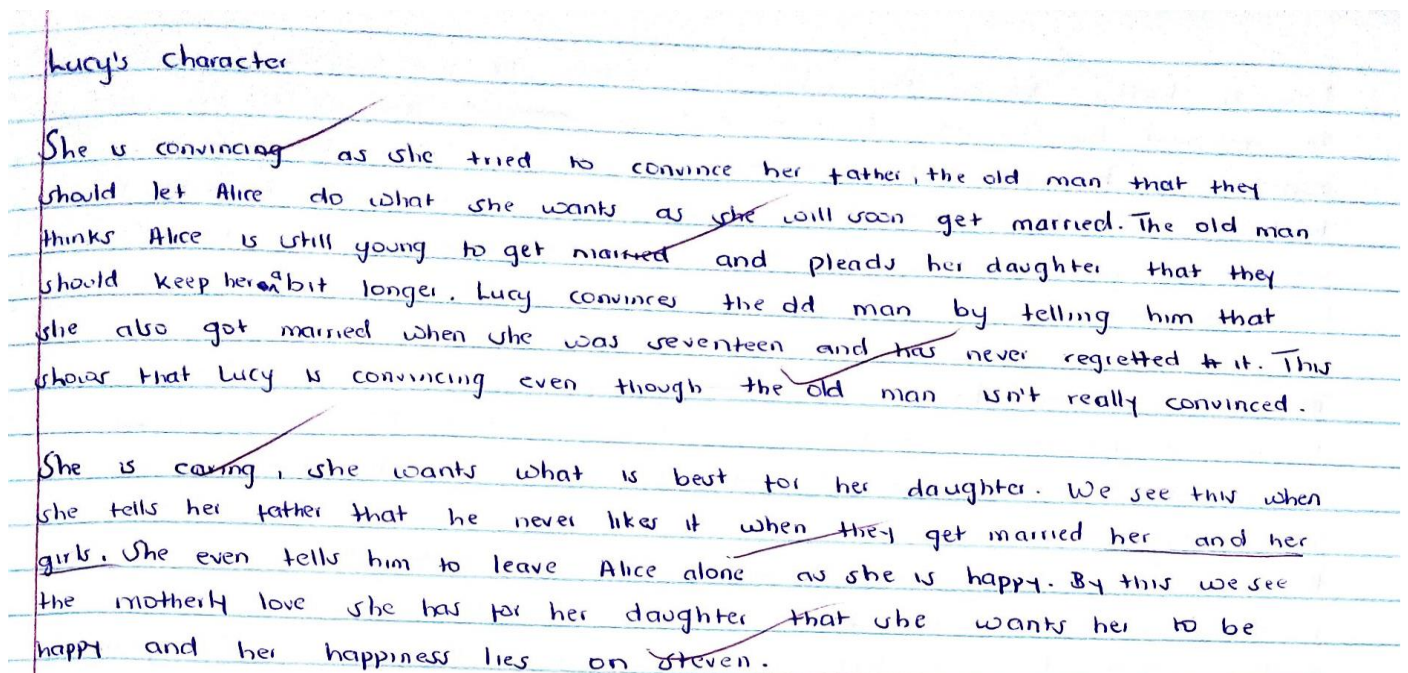 Lucy's Character
She is convincing as she tried to convince her father, the old man that they
should let Alice do what she wants as she will soon get married. The old man
thinks Alice is still young to get married and pleads her daughter that they
should keep her a bit longer. Lucy convinces the old man by telling him that
she also got married when she was seventeen and has never regretted it. This
shows that Lucy is convincing even though the old man isn't really convinced.
She is caring, she wants what is best for her daughter. We see this when
she tells her father that he never likes it when they get married her and her
girls. She even tells him to leave Alice alone as she is happy. By this we see
the motherly love she has for her daughter that she wants her to be
happy and her happiness lies on Steven.